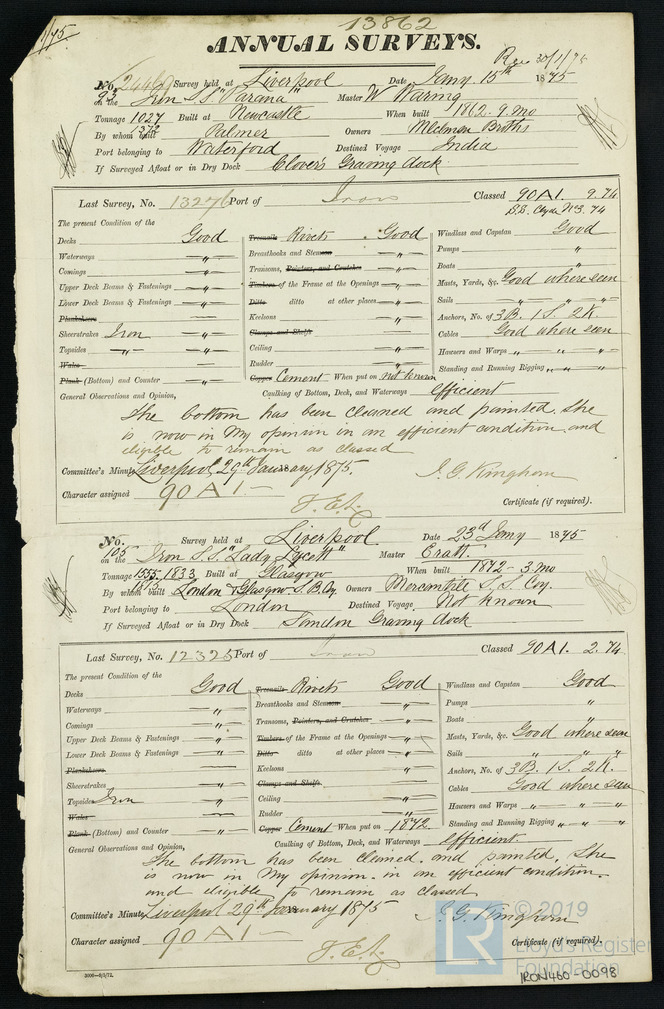 1/75.
13862
ANNUAL SURVEYS.
Rec 30/1/75
No. 24469 Survey held at Liverpool Date Jany 15th 1875
93 on the Iron S.S. "Parana" Master W Waring
Tonnage 1027 Built at Newcastle When built 1862. 9. Mo
By whom built Palmer Owners Broths
Port belonging to Waterford Destined Voyage India
If Surveyed Afloat or in Dry Dock Clover's Graving dock
Last Survey, No. 13276 Port of Iron Classed 90A1. 9. 74
S.S. Clyde No3. 74
The present Condition of the
Decks Good
Waterways "
Comings "
Upper Deck Beams & Fastenings "
Lower Deck Beams & Fastenings "
Planksheers
Sheerstrakes Iron "
Topsides " "
Wales
Plank (Bottom) and Counter "
Treenails Rivets Good
Breasthooks and Stemson "
Transoms, Pointers, and Crutches "
Timbers of the Frame at the Openings "
Ditto ditto at other places "
Keelsons "
Clamps and Shelfs
Ceiling "
Rudder "
Copper Cement When put on not known
Windlass and Capstan Good
Pumps "
Boats "
Masts, Yards, &c. Good where seen
Sails " " "
Anchors, No. of 3 B. 1 S. 2 K.
Cables Good where seen
Hawsers and Warps " " "
Standing and Running Rigging " " "
Caulking of Bottom, Deck, and Waterways efficient
General Observations and Opinion,
The bottom has been cleaned and painted. She
is now in my opinion in an efficient condition and
eligible to remain as classed
Committee's Minute Liverpool 29th January, 1875.
J. G. Kingham
Character assigned 90 A 1 -
Certificate (if required).
No. Survey held at Liverpool Date 23d Jany 1875
105 on the Iron S.S. "Lady Lycett" Master Cratt.
Tonnage 1555. 1833 Built at Glasgow When built 1872 - 3. mo
By whom built London & Glasgow S.B. Coy. Owners Mercantile S. S. Coy.
Port belonging to London Destined Voyage Not known
If Surveyed Afloat or in Dry Dock Sandon Graving dock
Last Survey, No. 12325 Port of Iron Classed 90A1. 2. 74
The present Condition of the
Decks Good
Waterways "
Comings "
Upper Deck Beams & Fastenings "
Lower Deck Beams & Fastenings "
Planksheers
Sheerstrakes "
Topsides Iron "
Wales
Plank (Bottom) and Counter "
Treenails Rivets Good
Breasthooks and Stemson "
Transoms, Pointers, and Crutches "
Timbers of the Frame at the Openings "
Ditto ditto at other places "
Keelsons "
Clamps and Shelfs
Ceiling "
Rudder "
Copper Cement When put on 1872
Windlass and Capstan Good
Pumps "
Boats "
Masts, Yards, &c. Good where seen
Sails " " "
Anchors, No. of 3 B. 1 S. 2 K.
Cables Good where seen
Hawsers and Warps " " "
Standing and Running Rigging " " "
Caulking of Bottom, Deck, and Waterways efficient
General Observations and Opinion,
The bottom has been cleaned. and painted, She
is now in my opinion. in an efficient condition.
and eligible to remain as classed
Committee's Minute Liverpool 29th January 1875
J. G. Kingham
Character assigned 90 A 1 -
Certificate (if required).
LR © 2019
Lloyd's Register
Foundation
IRON460-0098